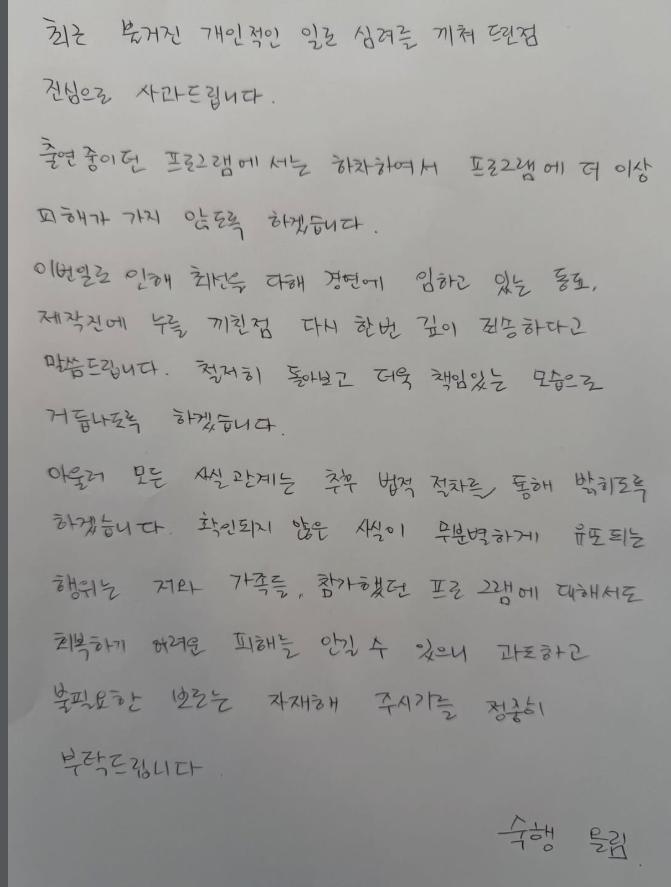 최근 불거진 개인적인 일로 심려를 끼쳐 드린점
진심으로 사과드립니다.
출연중이던 프로그램에서는 하차하여서 프로그램에 더 이상
피해가 가지 않도록 하겠습니다.
이번일로 인해 최선을 다해 경연에 임하고 있는 동료,
제작진에 누를 끼친점 다시 한번 깊이 죄송하다고
말씀드립니다. 철저히 돌아보고 더욱 책임있는 모습으로
거듭나도록 하겠습니다.
아울러 모든 사실관계는 추후 법적 절차를 통해 밝히도록
하겠습니다. 확인되지 않은 사실이 무분별하게 유포되는
행위는 저와 가족들, 참가했던 프로그램에 대해서도
회복하기 어려운 피해를 안길 수 있으니 과도하고
불필요한 보도는 자재해 주시기를 정중히
부탁드립니다
수행 올림.